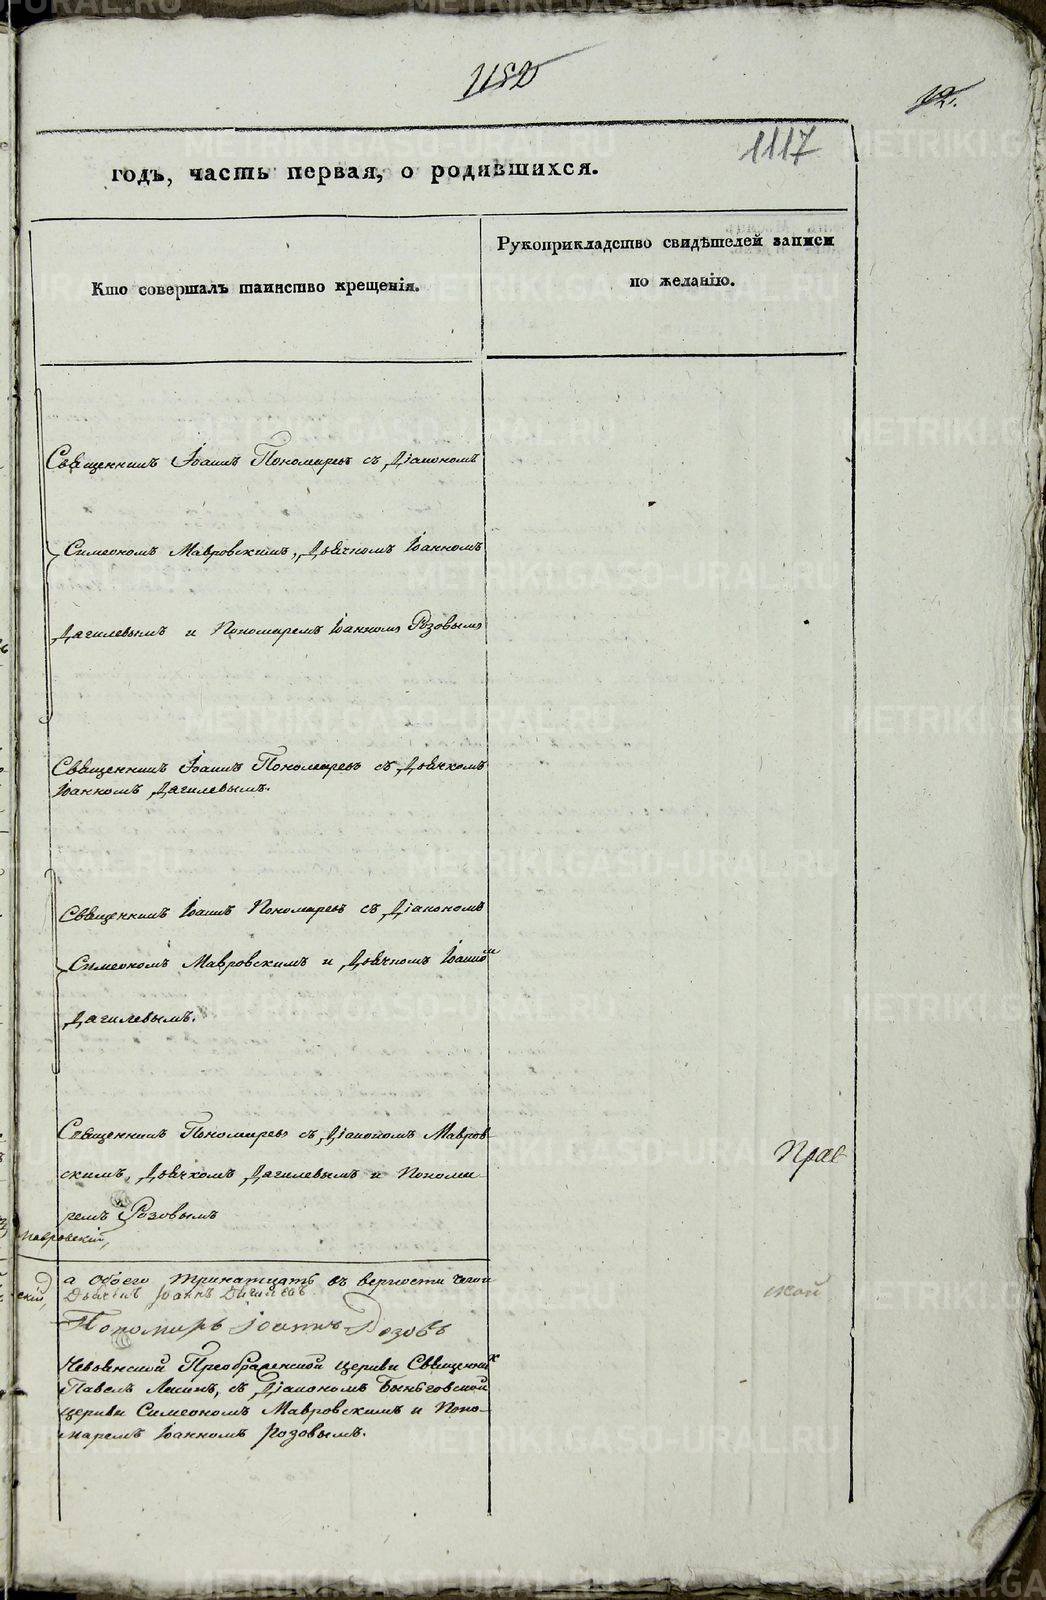 12.
1117
годъ, часть первая, о родившихся.
Кто совершалъ таинство крещенія.
Рукоприкладство свидѣтелей записи
по желанію.
Священникъ Іоаннъ Пономаревъ съ Діакономъ
Симеономъ Мавровскимъ, Дьячкомъ Іоанномъ
Дягилевымъ и Пономаремъ Іоанномъ Розовымъ
Священникъ Іоаннъ Пономаревъ съ Дьячкомъ
Іоанномъ Дягилевымъ.
Священникъ Іоаннъ Пономаревъ съ Діакономъ
Симеономъ Мавровскимъ и Дьячкомъ Іоанном
Дягилевымъ.
Священникъ Пономаревъ съ Діакономъ Мавров-
скимъ, Дьячкомъ Дягилевымъ и Понома-
ремъ Розовымъ
Мавровскій,
Прав
а обоего тринатцать въ верности чего
ской
Дьячекъ Іоаннъ Дягилевъ
Пономарь Іоаннъ Розовъ
Невьянской Преображенской церкви Священник
Павелъ, съ Діакономъ Быньговской
церкви Симеономъ Мавровскимъ и Поно-
маремъ Іоанномъ Розовымъ.
METRIKI.GASO-URAL.RU